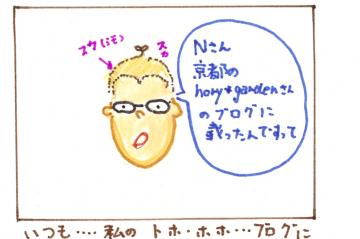 スカ(ミモ)
スカ
Nさん
京都の
hory*gardenさん
のブログに
載ったんですって
いつも‥‥私の トホ・ホホ…ブログに